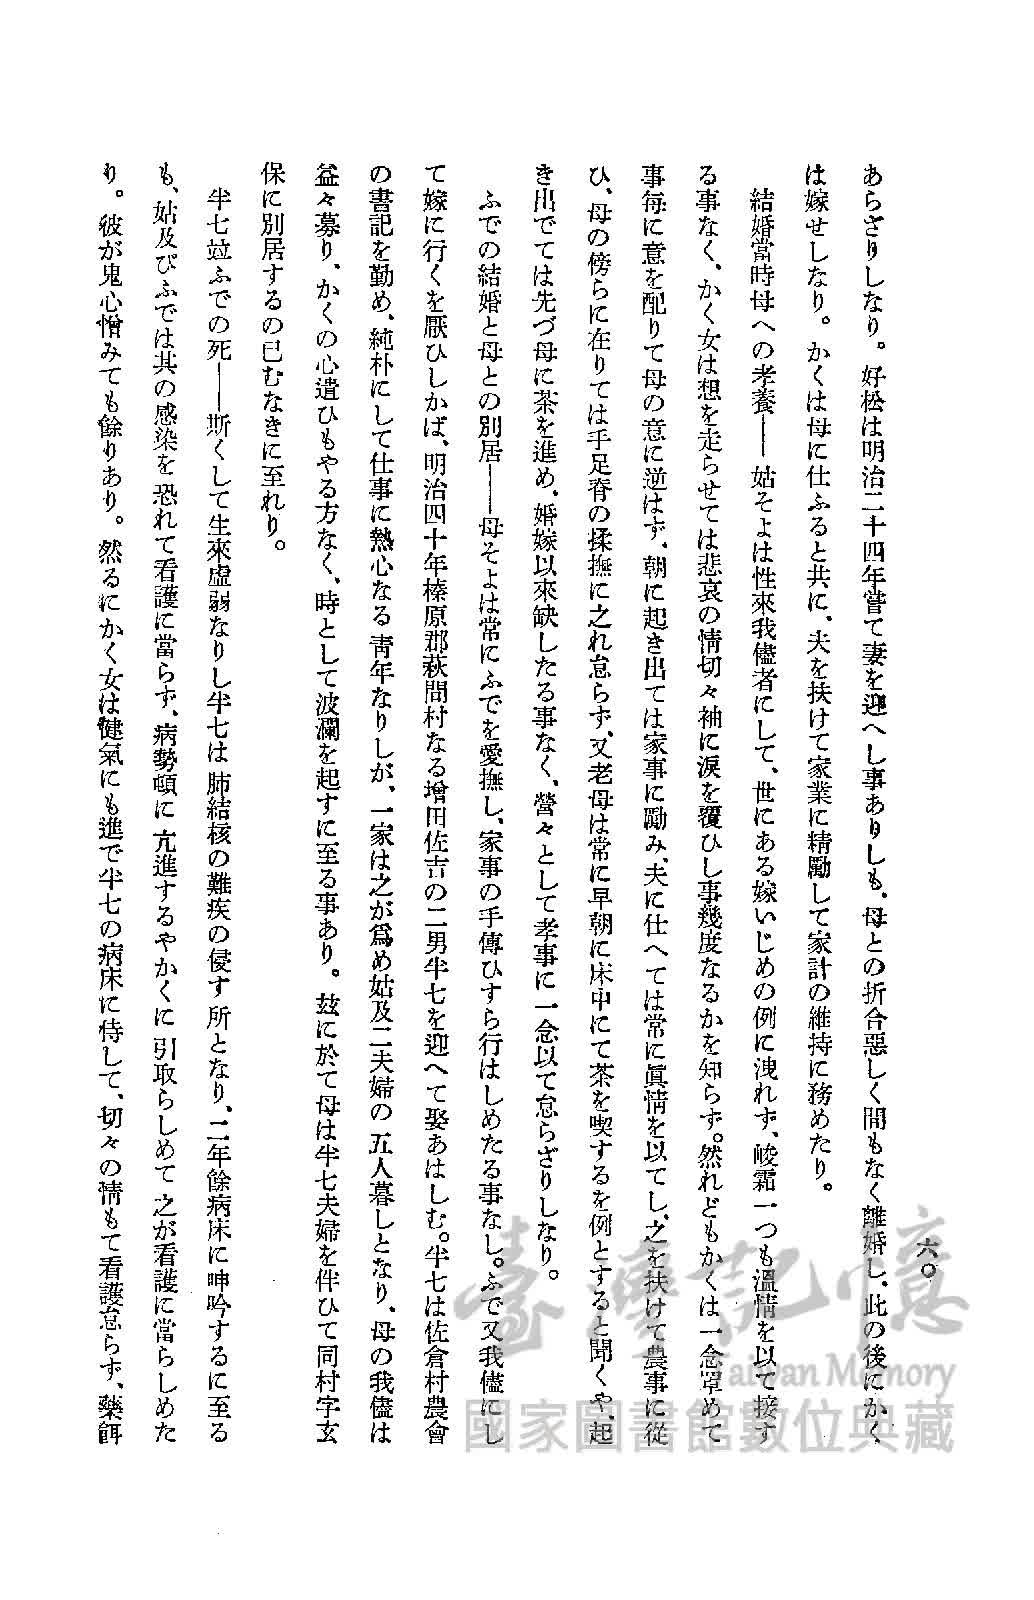 六〇
あらざりしなり。好松は明治二十四年嘗て妻を迎へし事ありしも、母との折合惡しく間もなく離婚し、此の後にかく
は嫁せしなり。かくは母に仕ふると共に、夫を扶けて家業に精勵して家計の維持に務めたり。
結婚當時母への孝養――姑そよは性來我儘者にして、世にある嫁いじめの例に洩れず、峻霜一つも溫情を以て接す
る事なく、かく女は想を走らせては悲哀の情切々袖に淚を覆ひし事幾度なるかを知らず。然れどもかくは一念罩めて
事每に意を配りて母の意に逆はず、朝に起き出ては家事に勵み、夫に仕へては常に眞情を以てし、之を扶けて農事に從
ひ、母の傍らに在りては手足脊の揉撫に之れ怠らず、又老母は常に早朝に床中にて茶を喫するを例とすると聞くや、起
き出でては先づ母に茶を進め、婚嫁以來缺したる事なく、營々として孝事に一念以て怠らざりしなり。
ふでの結婚と母との別居――母そよは常にふでを愛撫し、家事の手傳ひすら行はしめたる事なし。ふで又我儘にし
て嫁に行くを厭ひしかば、明治四十年榛原郡萩間村なる增田佐吉の二男半七を迎へて娶あはしむ。半七は佐倉村農會
の書記を勤め、純朴にして仕事に熱心なる靑年なりしが、一家は之が爲め姑及二夫婦の五人暮しとなり、母の我儘は
益々募り、かくの心遣ひもやる方なく、時として波瀾を起すに至る事あり。玆に於て母は半七夫婦を伴ひて同村字玄
保に別居するの已むなきに至れり。
半七竝ふでの死――斯くして生來虛弱なりし半七は肺結核の難疾の侵す所となり、二年餘病床に呻吟するに至る
も、姑及びふでは其の感染を恐れて看護に當らず、病勢頓に亢進するやかくに引取らしめて之が看護に當らしめた
り。彼が鬼心憎みても餘りあり。然るにかく女は健氣にも進で半七の病床に侍して、切々の情もて看護怠らず、藥餌
臺灣記憶
Taiwan Memory
國家圖書館數位典藏